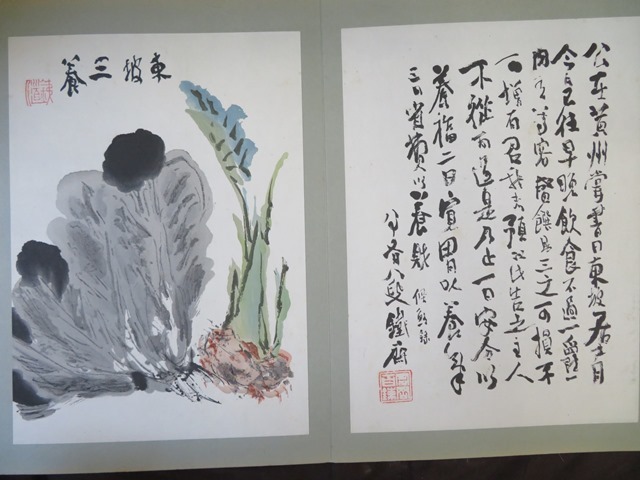 東坡三養
公在黃州嘗書曰東坡居士自
今日以往早晚飲食不過一爵一
肉有尊客盛饌則三之可損不
可增有召我者預以此告之主人
不從而過是乃止一曰安分以
養福二曰寬胃以養氣
三曰省費以養財
叟鐵齋